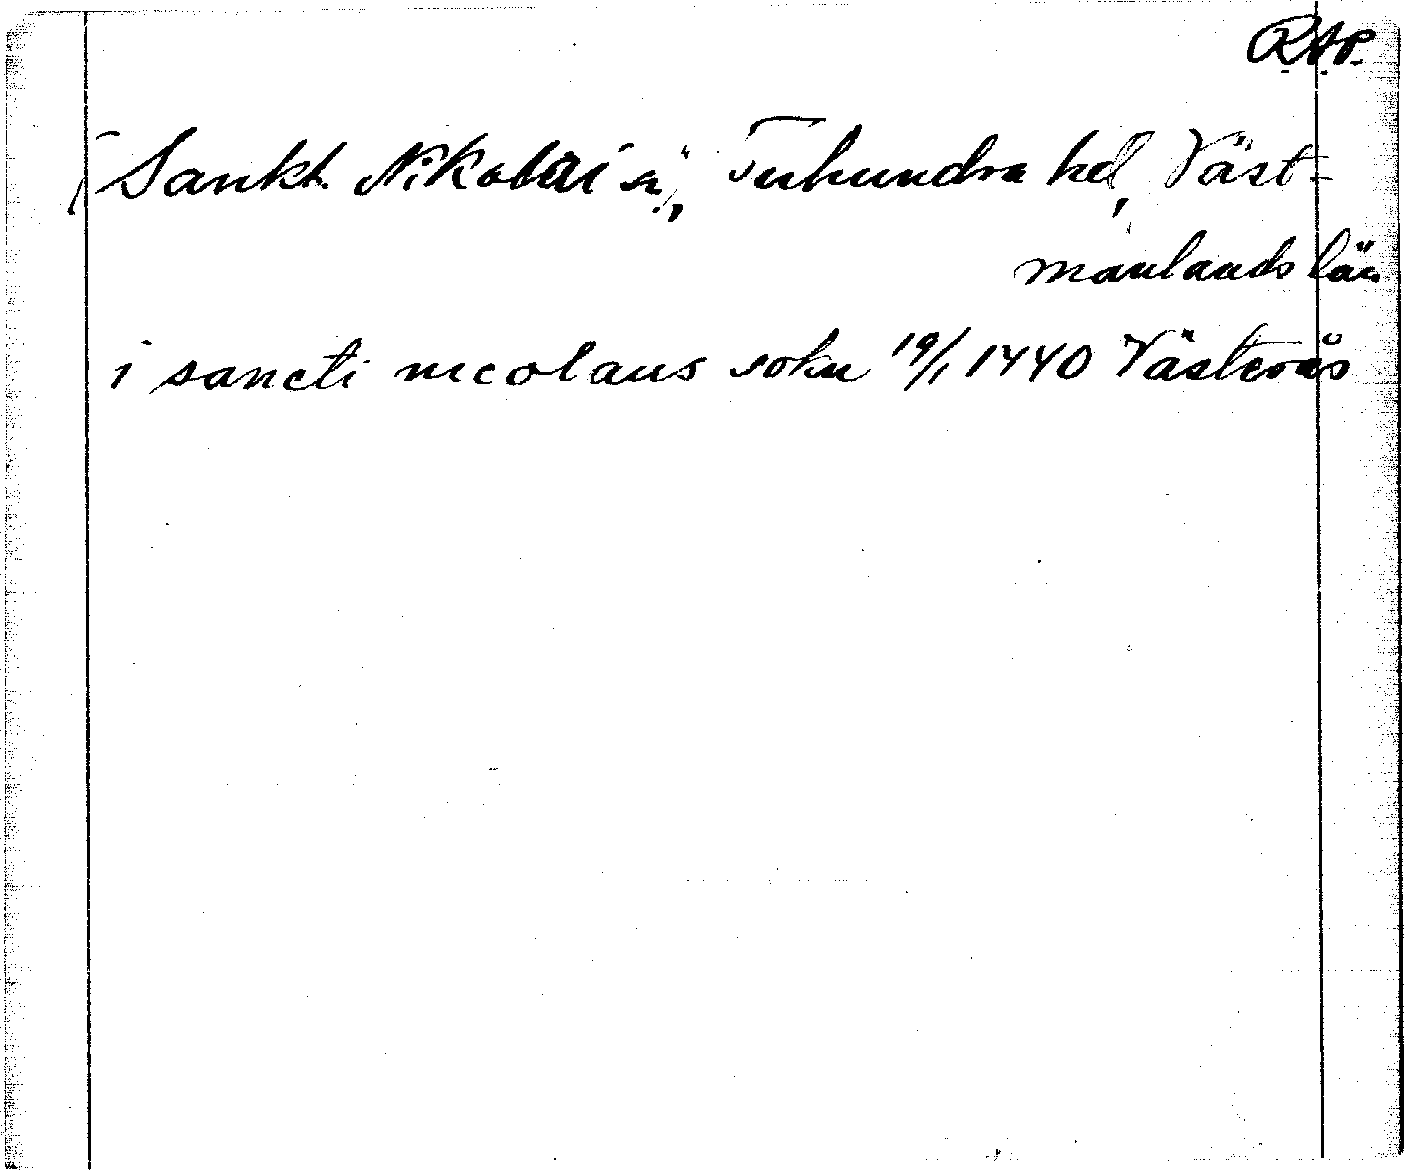 R.A.P.
(Sankt Nikolai sn), Tuhundra hd, Väst-
manlands län
i sancti nicolaus sokn 19/1 1440 Västerås